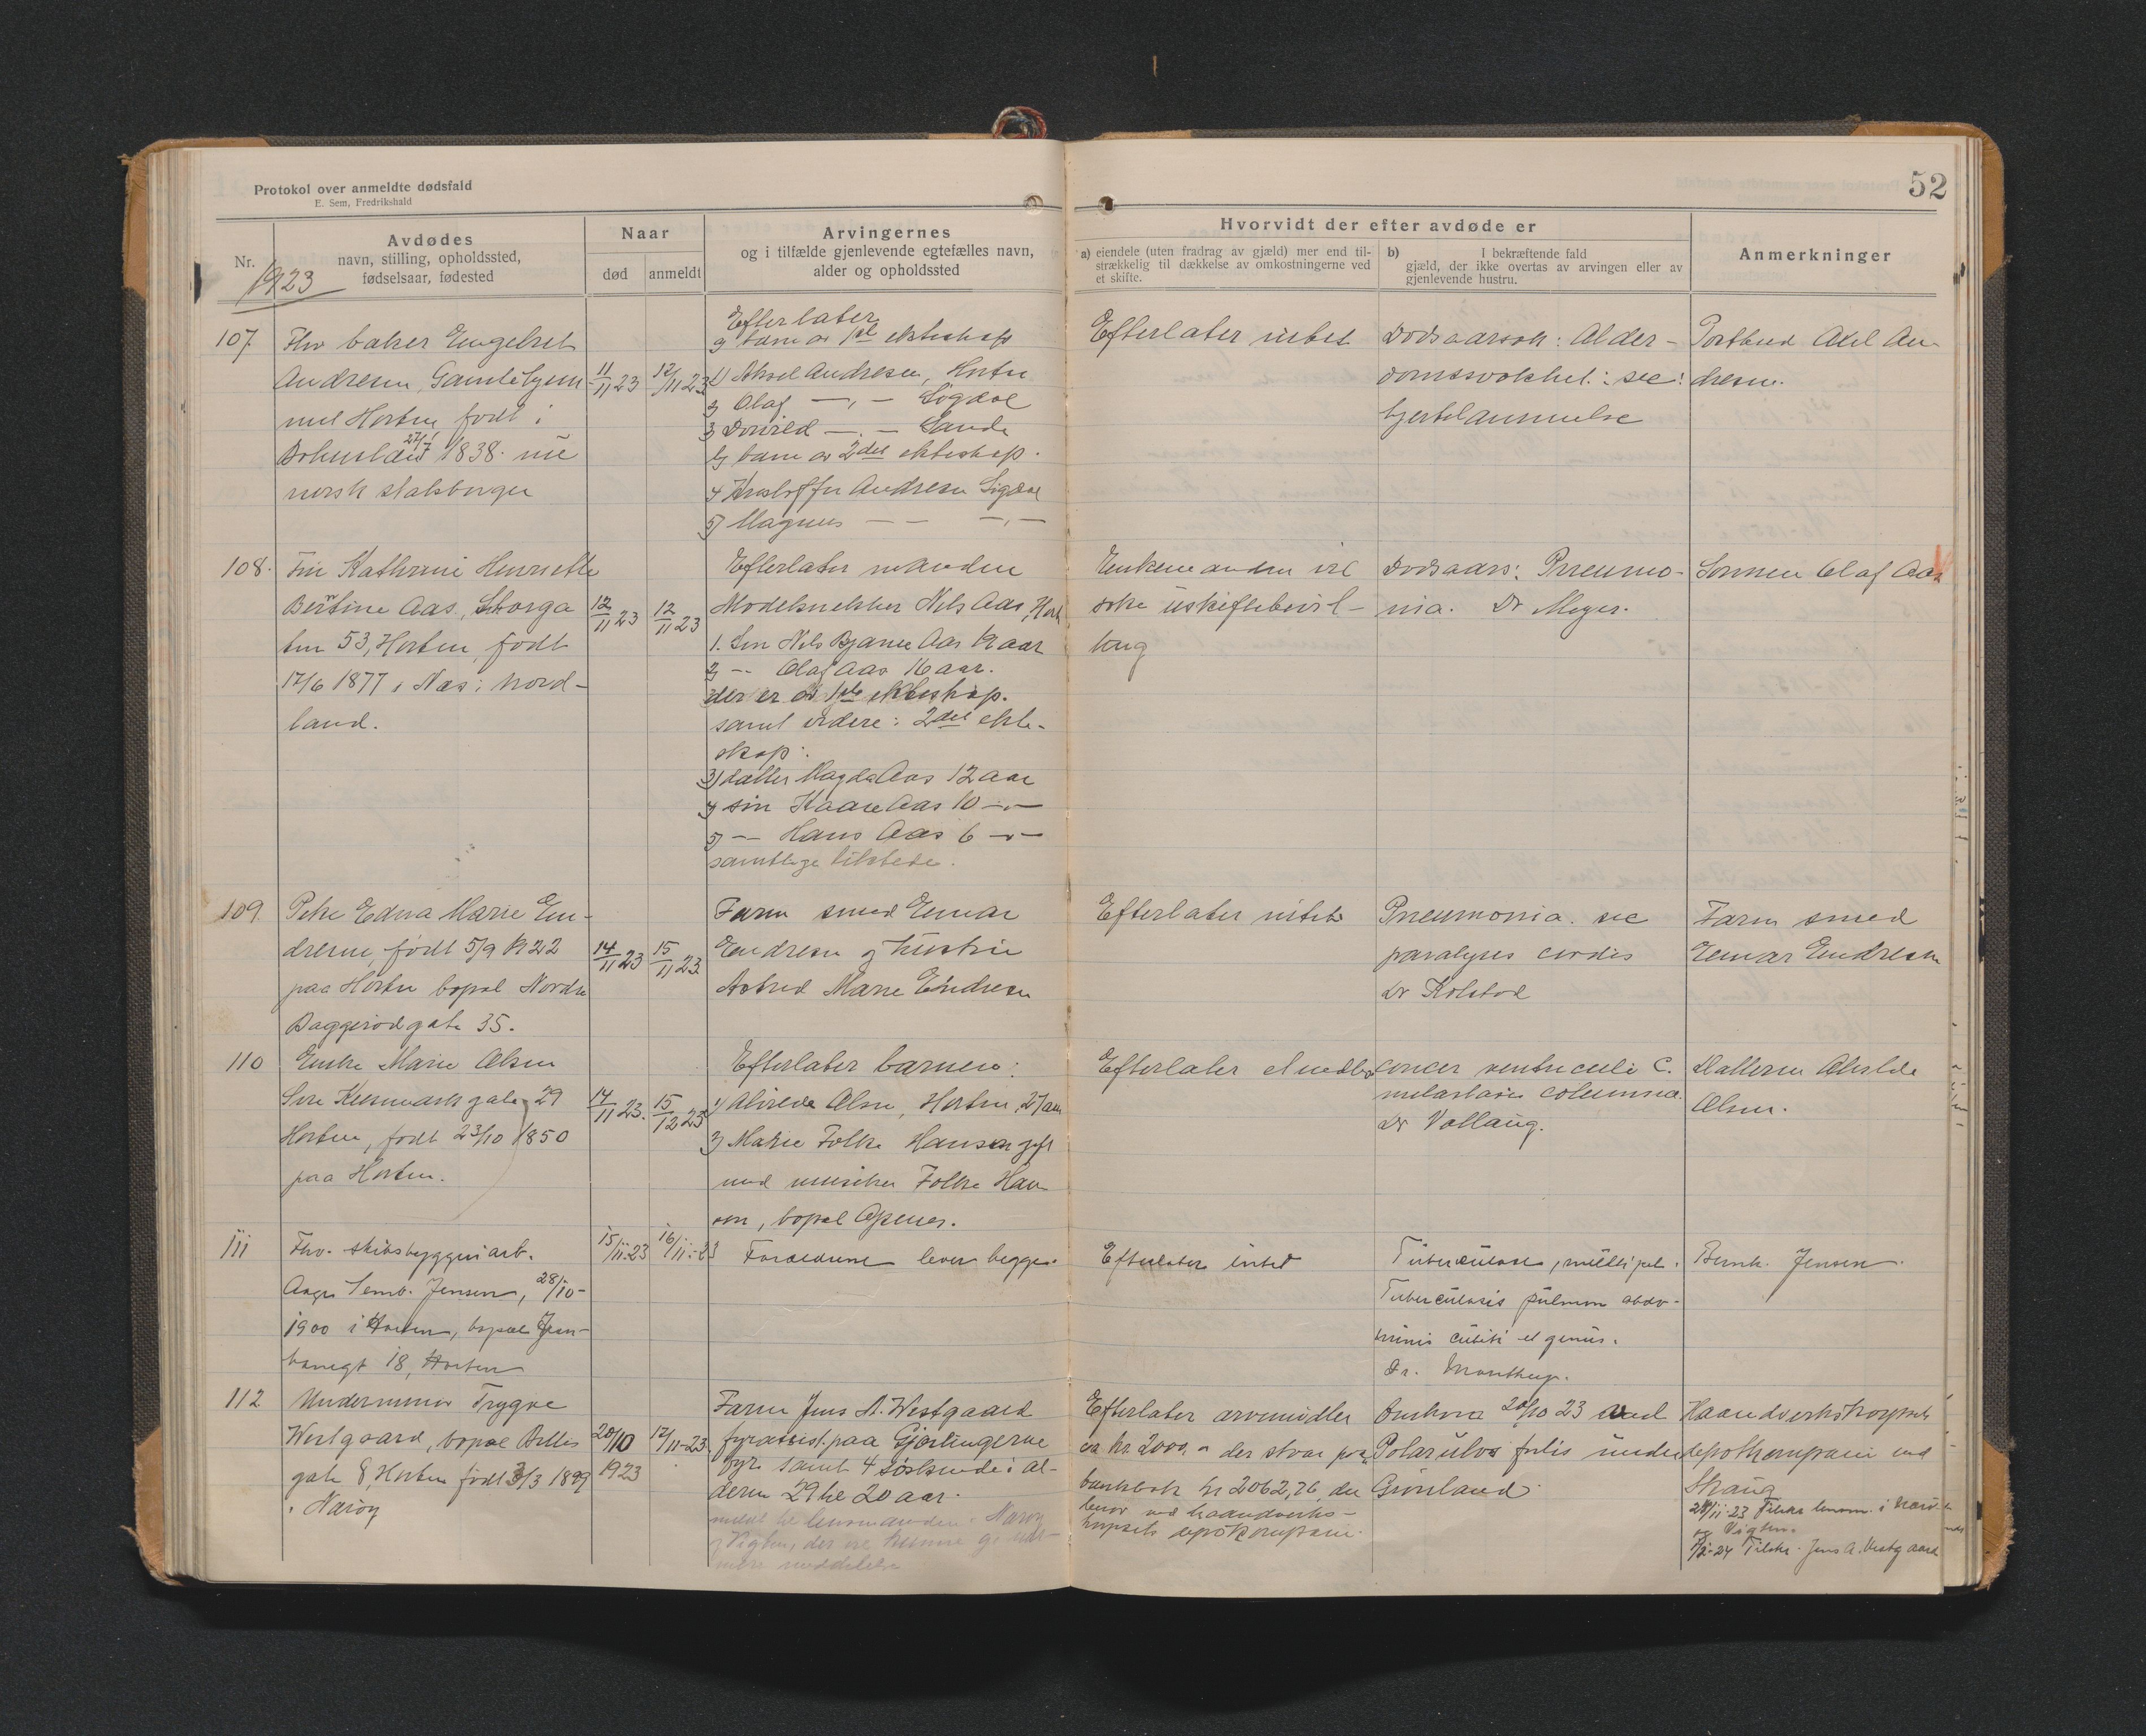 Protokol over anmeldte dødsfald
E. Sem, Fredrikshald
52
Nr.
1923
Avdødes
navn, stilling, opholdssted,
fødselsaar, fødested
Naar
død
anmeldt
Arvingernes
og i tilfælde gjenlevende egtefælles navn,
alder og opholdssted
Hvorvidt der efter avdøde er
a) eiendele (uten fradrag av gjæld) mer end til-
strækkelig til dækkelse av omkostningerne ved
et skifte.
b) I bekræftende fald
gjæld, der ikke overtas av arvingen eller av
gjenlevende hustru.
Anmerkninger
107.
Fhv baker Engelbret
Andresen, Gamlebyen
ved Horten født i
Bohuslän 27/7 1838. nu
norsk statsborger
11/11 23
12/11 23
Efterlater
a) barn av 1ste ekteskap
1) Aksel Andresen, Horten
2) Olaf — " — Sigdal
3) — " — Sande
b) barn av 2det ekteskap.
4) Kristoffer Andresen Sigdal
5) Magnus — — — " —
Efterlater intet
Dødsaarsak: Alder-
domssvakhet: sec:
hjertelammelse
Postbud Axel An-
dresen.
108.
Fru Kathrine Henriette
Berntine Aas, Storga
ten 53, Horten, født
17/6 1877 i Næs i Nord-
land.
12/11 23
12/11 23
Efterlater manden
Modelsnekker Nils Aas, Hort
1. Søn Nils Bjarne Aas 19 aar
2) — Olaf Aas 16 aar.
der er av 1ste ekteskap.
samt videre i 2det ekte-
skap:
3) datter Magda Aas 12 aar
4) søn Kaare Aas 10 — " —
5) — Hans Aas 6 — " —
samtlige tilstede.
Enkemanden vil
søke uskiftebevil-
ling
Dødsaars: Pneumo-
nia. Dr Meyer.
Sønnen Olaf Aas
109.
Pike Edna Marie En-
dresen, født 5/9 1922
paa Horten bopæl Nordre
Baggerødgate 35.
14/11 23
15/11 23.
Faren smed Einar
Endresen og hustru
Astrid Marie Endresen
Efterlater intet
Pneumonia. sec
paralyses cordis
Dr Kolstad
Faren smed
Einar Endresen
110
Enke Marie Olsen
gate 29
Horten, født 23/10 1850
paa Horten.
14/11 23.
15/12 23
Efterlater barnene:
1) Alvilde Olsen, Horten, 27 aar
2) Marie Folke Hansen gift
med musiker Folke Han-
sen, bopæl
Efterlater
Cancer ventriculi c.
metastasis columna.
Dr Vallaug.
Datteren Alvilde
Olsen.
111
Fhv. skibsbyggeriarb.
Aage Jensen, 28/10-
1900 i Horten, bopæl Jern-
banegt 18, Horten
15/11-23
16/11-23
Forældrene lever begge.
Efterlater intet
Tuberculose, multipel.
Tuberculosis pulmon abdo-
minis cubiti et genus.
Dr.
Bernh. Jensen.
112
Underminør Trygve
Westgaard, bopæl
gate 8, Horten født 3/3 1899
i Nærøy
20/10
1923
17/11-23
Faren Jens A. Westgaard
fyrassist. paa Gjæslingerne
fyr samt 4 søskende i al-
deren 29 til 20 aar.
meldt til lensmanden i Nærøy
og Vigten, der vil kunne gi nær-
mere meddelelse
Efterlater arvemidler
ca kr. 2000.- der staar paa
bankbok kr 2062,76, der
beror ved haandverks-
korpsets depotkompani.
Omkom 20/10 23 ved
Polarulvs forlis under
Grønland
Haandverkskorpsets
depotkompani ved
Skaug
28/11-23 Tilskr. lensm. i Nærø-
og Vigten.
Tilskr. Jens A. Vestgaard